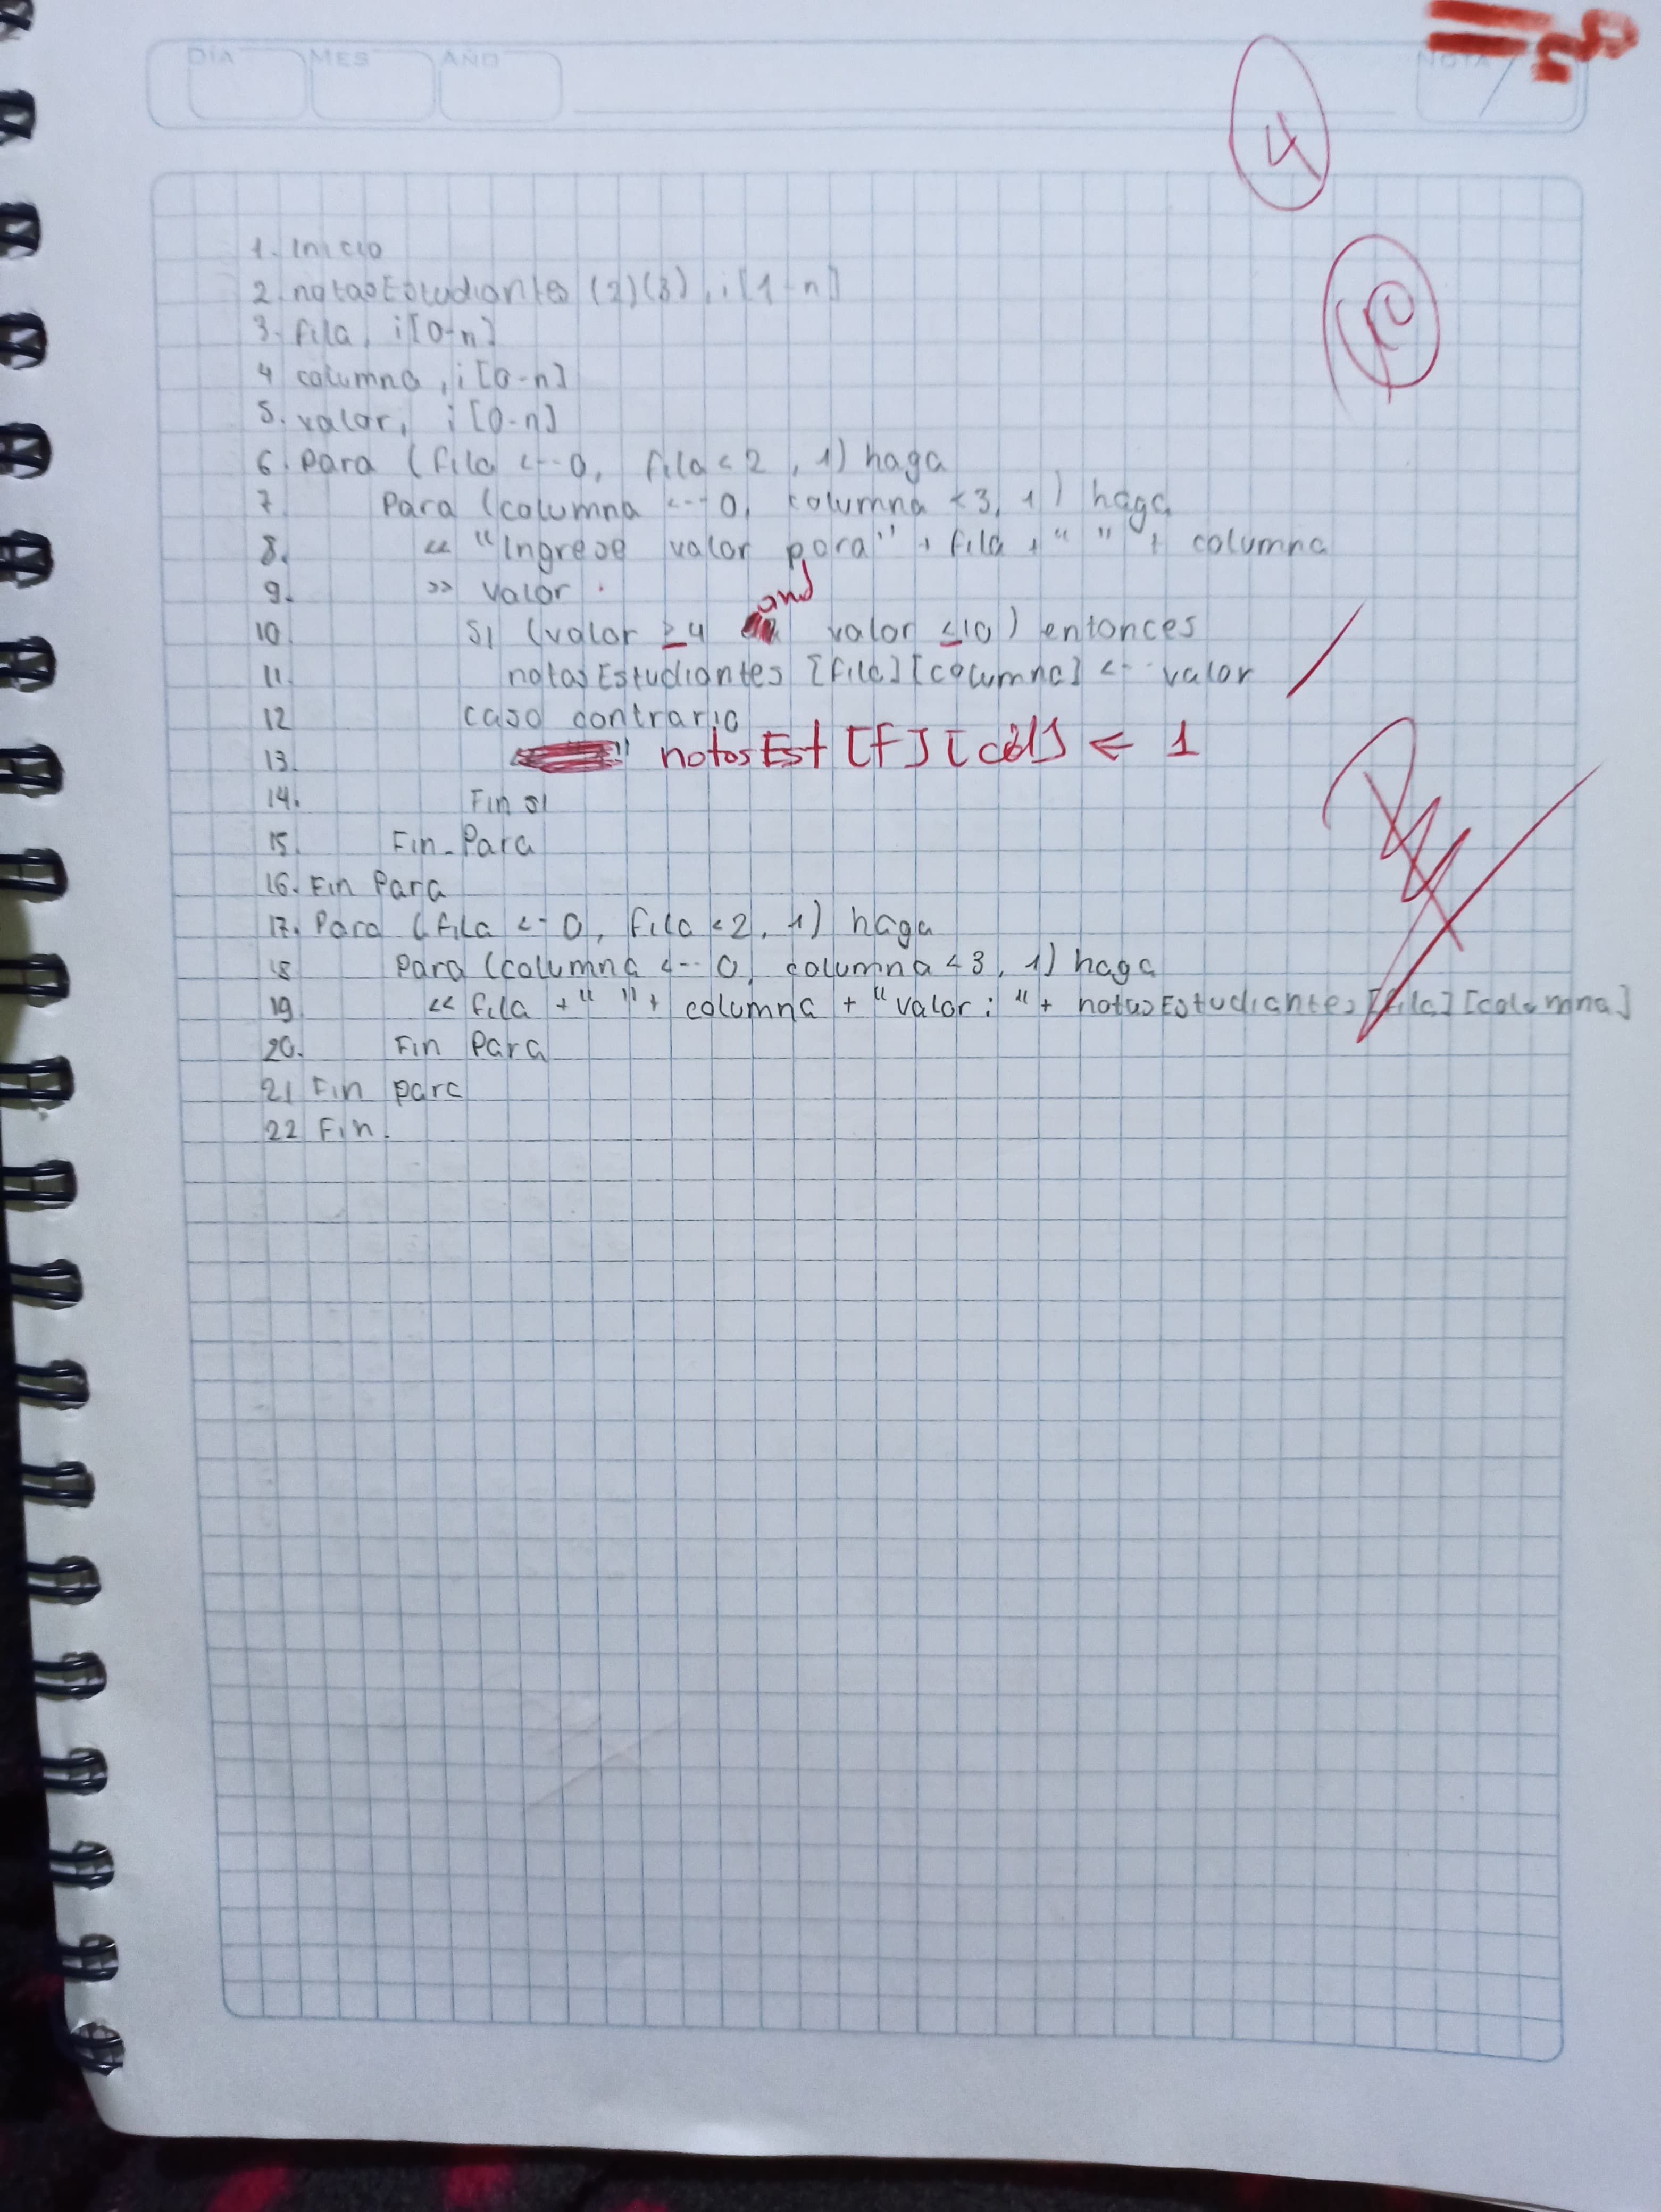 DIA MES AÑO NOTA
4
10
1. Inicio
2. notasEstudiantes (2)(3), i[1-n]
3. fila, i[0-n]
4 columna, i[0-n]
5. valor, i[0-n]
6. Para (fila <-- 0, fila < 2, 1) haga
7 Para (columna <-- 0, columna < 3, 1) haga
8. << "Ingrese valor para" + fila + " " + columna
9. >> valor
and
10 Si (valor ≥ 4 valor ≤ 10) entonces
11. notasEstudiantes [fila][columna] <-- valor
12 caso contrario
13. notasEst [F][col] <- 1
14. Fin si
15. Fin-Para
16. Fin Para
17. Para (fila <-- 0, fila < 2, 1) haga
18 Para (columna <-- 0, columna < 3, 1) haga
19 << fila + " " + columna + "valor: " + notasEstudiantes [fila][columna]
20. Fin Para
21 Fin para
22 Fin.